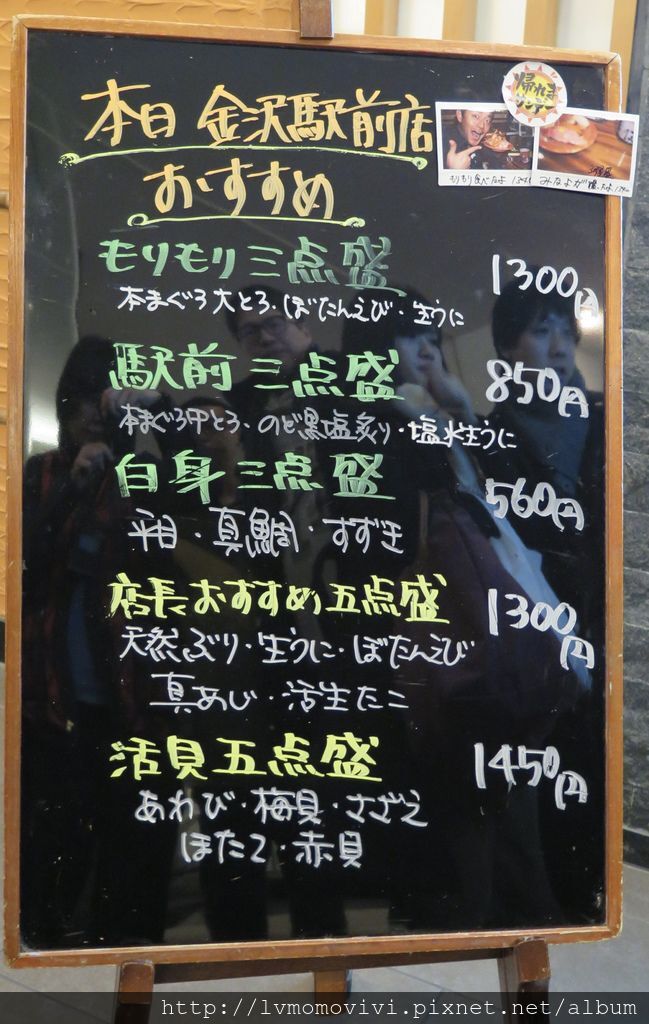 本日 金沢駅前店
おすすめ
帰れま
もりもり三点盛 1300円
本まぐろ大とろ・ぼたんえび・生うに
駅前三点盛 850円
本まぐろ中とろ・のど黒塩炙り・塩水生うに
白身三点盛 560円
平目・真鯛・すずき
店長おすすめ五点盛 1300円
天然ぶり・生うに・ぼたんえび
真あじ・活生たこ
活貝五点盛 1450円
あわび・梅貝・さざえ
ほたて・赤貝
http://lvmomovivi.pixnet.net/album